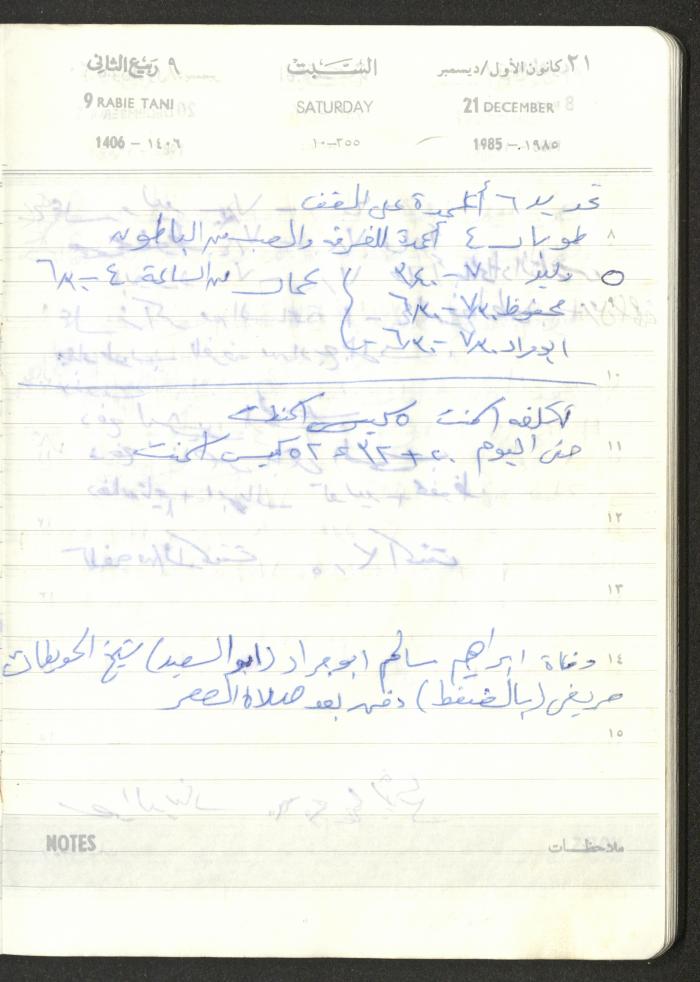 ٢١ كانون الأول/ديسمبر السبت ٩ ربيع الثاني
21 DECEMBER SATURDAY 9 RABIE TANI
1985 - ١٩٨٥ ١٠-٣٥٥ 1406 - ١٤٠٦
٦ أعمدة على السقف
٨ طوبار ٤ أعمدة للغرفة والصب من الباطون
وليد ٧ - عمال من الساعة ٤ -
٩ محفوظ ٧٫٣٠ - ٦٫٣٠
ابو مراد ٧٫٣٠ - ٦٫٣٠
١٠
تكلفه اسمنت ٥ كيس
١١ حتى اليوم ٢٠ + ٣٢ = ٥٢ كيس اسمنت
١٢
١٣
١٤ وفاة ابراهيم سالم ابو جراد (ابو السعيد) شيخ الحويطات
مريض (بالضغط) دفن بعد صلاة العصر
١٥
NOTES ملاحظات